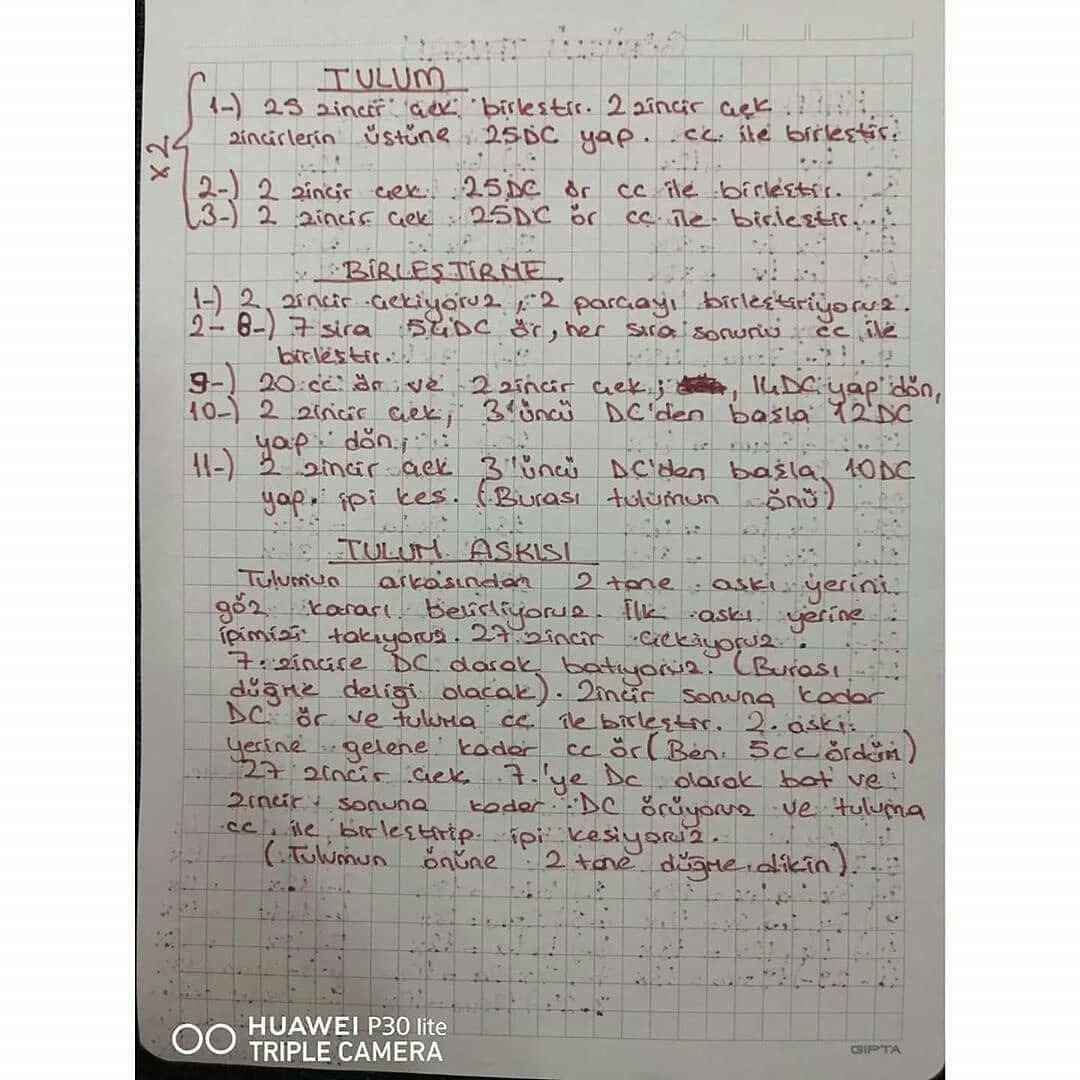 TULUM
x2
1-) 25 zincir çek birleştir. 2 zincir çek
zincirlerin üstüne 25DC yap. cc ile birleştir.
2-) 2 zincir çek 25DC ör cc ile birleştir.
3-) 2 zincir çek 25DC ör cc ile birleştir.
BİRLEŞTİRME
1-) 2 zincir çekiyoruz, 2 parçayı birleştiriyoruz.
2-8-) 7 sıra 54DC ör, her sıra sonunu cc ile
birleştir.
9-) 20 cc ör ve 2 zincir çek; , 14DC yap dön,
10-) 2 zincir çek, 3'üncü DC'den başla 12DC
yap dön,
11-) 2 zincir çek 3'üncü DC'den başla, 10DC
yap. ipi kes. (Burası tulumun önü)
TULUM ASKISI
Tulumun arkasından 2 tane askı yerini
göz kararı belirliyoruz. İlk askı yerine
ipimizi takıyoruz. 27 zincir çekiyoruz.
7. zincire DC olarak batıyoruz. (Burası
düğme deliği olacak). Zincir sonuna kadar
DC ör ve tuluma cc ile birleştir. 2. askı
yerine gelene kadar cc ör (Ben 5cc ördüm)
27 zincir çek 7.'ye Dc olarak bat ve
zincir sonuna kadar DC örüyoruz ve tuluma
cc ile birleştirip ipi kesiyoruz.
(Tulumun önüne 2 tane düğme dikin)
HUAWEI P30 lite
TRIPLE CAMERA
GIPTA